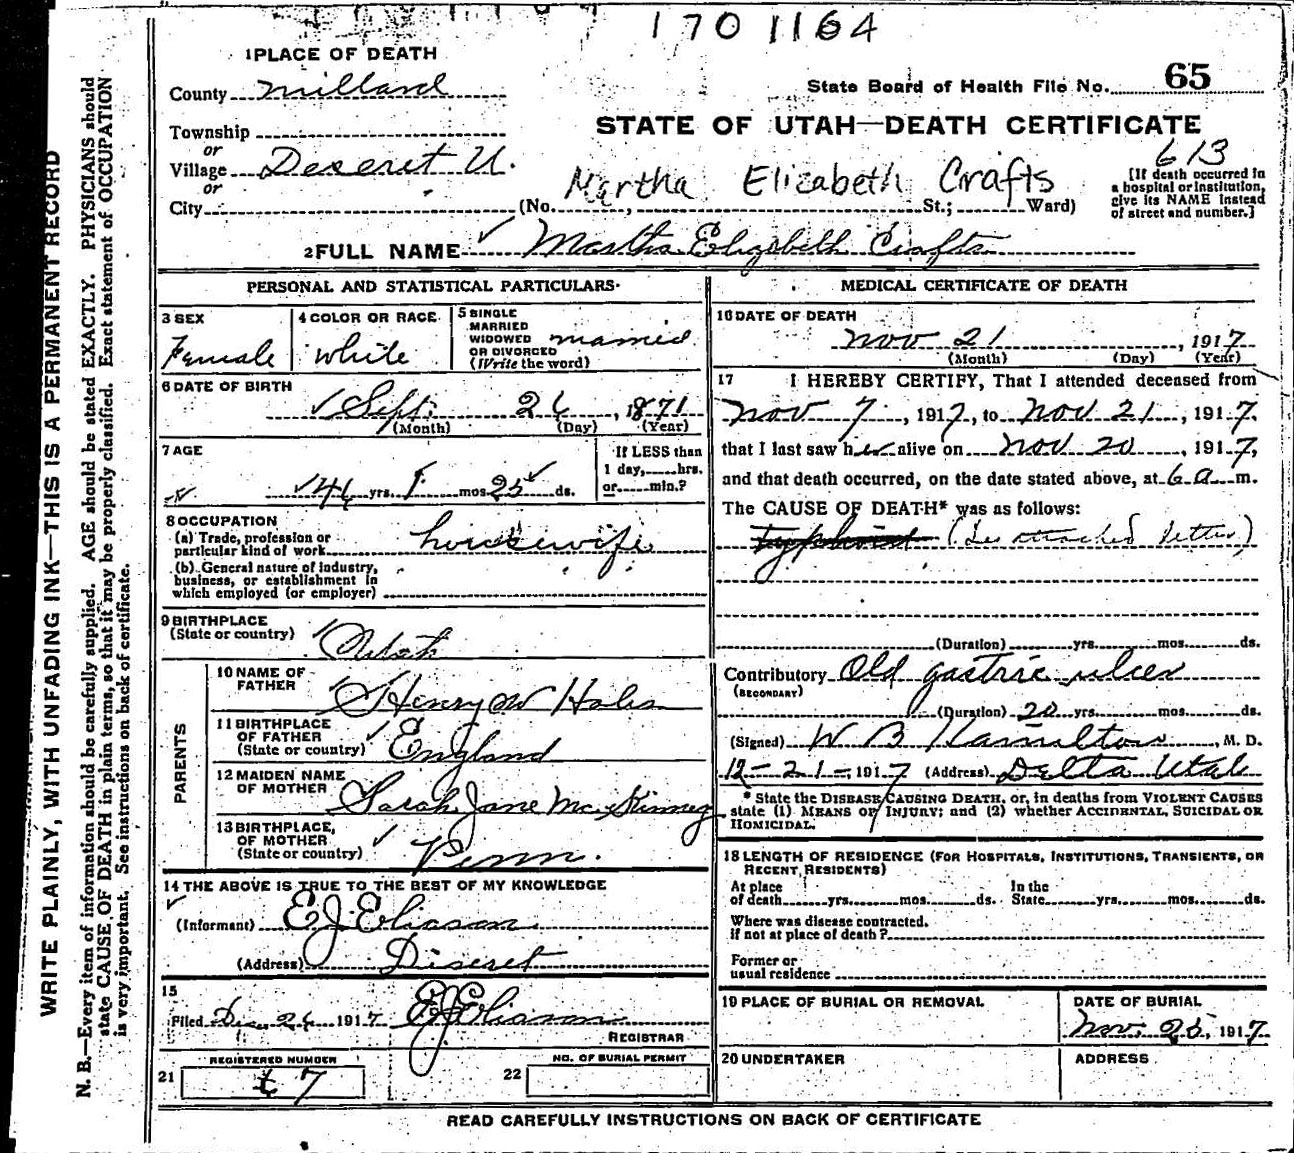 1701164
1 PLACE OF DEATH
County Millard
State Board of Health File No. 65
Township
or
STATE OF UTAH—DEATH CERTIFICATE
Village Deseret U.
or
613
Martha Elizabeth Crafts
[If death occurred in
a hospital or institution,
give its NAME instead
of street and number.]
City (No. , St.; Ward)
2 FULL NAME Martha Elizabeth Crafts
PERSONAL AND STATISTICAL PARTICULARS
3 SEX
Female
4 COLOR OR RACE
White
5 SINGLE
MARRIED
WIDOWED
OR DIVORCED
(Write the word)
married
6 DATE OF BIRTH
Sept. 26, 1871
(Month) (Day) (Year)
7 AGE
46 yrs. 1 mos. 25 ds.
If LESS than
1 day, hrs.
or min.?
8 OCCUPATION
(a) Trade, profession or
particular kind of work housewife
(b) General nature of industry,
business, or establishment in
which employed (or employer)
9 BIRTHPLACE
(State or country) Utah
PARENTS
10 NAME OF
FATHER Henry W Hales
11 BIRTHPLACE
OF FATHER
(State or country) England
12 MAIDEN NAME
OF MOTHER Sarah Jane McKinney
13 BIRTHPLACE,
OF MOTHER
(State or country) Penn.
14 THE ABOVE IS TRUE TO THE BEST OF MY KNOWLEDGE
(Informant) E J Eliason
(Address) Diseret
15
Filed Dec 26 1917 E J Eliason
REGISTRAR
REGISTERED NUMBER
21 7
NO. OF BURIAL PERMIT
22
MEDICAL CERTIFICATE OF DEATH
16 DATE OF DEATH
Nov 21, 1917
(Month) (Day) (Year)
17 I HEREBY CERTIFY, That I attended deceased from
Nov 7, 1917, to Nov 21, 1917.
that I last saw her alive on Nov 20, 1917,
and that death occurred, on the date stated above, at 6 a m.
The CAUSE OF DEATH* was as follows:
typhoid (See attached letter)
(Duration) yrs. mos. ds.
Contributory Old gastric ulcer
(SECONDARY)
(Duration) 20 yrs. mos. ds.
(Signed) W B Hamilton, M. D.
12-21-1917 (Address) Delta Utah
* State the DISEASE CAUSING DEATH, or, in deaths from VIOLENT CAUSES
state (1) MEANS OF INJURY; and (2) whether ACCIDENTAL, SUICIDAL OR
HOMICIDAL.
18 LENGTH OF RESIDENCE (FOR HOSPITALS, INSTITUTIONS, TRANSIENTS, OR
RECENT RESIDENTS)
At place
of death yrs. mos. ds.
In the
State yrs. mos. ds.
Where was disease contracted.
if not at place of death?
Former or
usual residence
19 PLACE OF BURIAL OR REMOVAL
DATE OF BURIAL
Nov. 25, 1917
20 UNDERTAKER
ADDRESS
READ CAREFULLY INSTRUCTIONS ON BACK OF CERTIFICATE
WRITE PLAINLY, WITH UNFADING INK—THIS IS A PERMANENT RECORD
N. B.—Every item of information should be carefully supplied. AGE should be stated EXACTLY. PHYSICIANS should
state CAUSE OF DEATH in plain terms, so that it may be properly classified. Exact statement of OCCUPATION
is very important. See instructions on back of certificate.